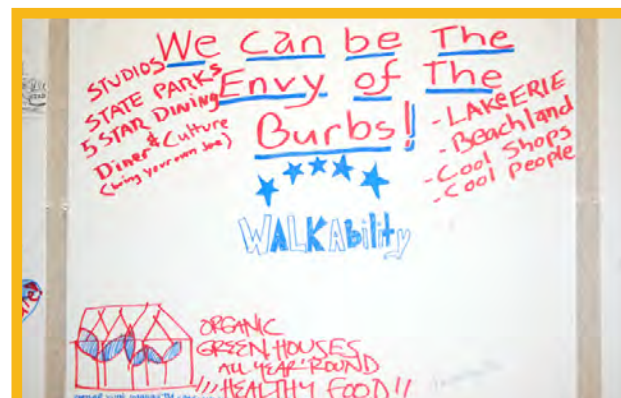 We Can be The
Envy of The
Burbs!
STUDIOS
STATE PARKS
5 STAR DINING
Diner & Culture
(bring your own Joe)
- LAKE ERIE
- Beachland
- Cool Shops
- Cool People
WALKAbility
ORGANIC
GREEN HOUSES
ALL YEAR ROUND
!!! HEALTHY FOOD !!